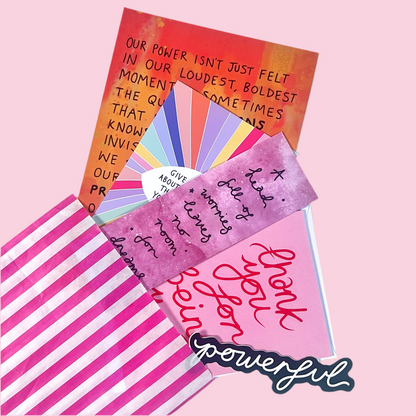 OUR POWER ISN'T JUST FELT
IN OUR LOUDEST, BOLDEST
MOMENT SOMETIMES
THE QU NS
THAT
KNOW
INVIS
WE
OUR
PR
GIVE
ABOUT
TH
YO
A head
full of
worries
leaves
no
room
for
dreams
thank
you
for
being
powerful